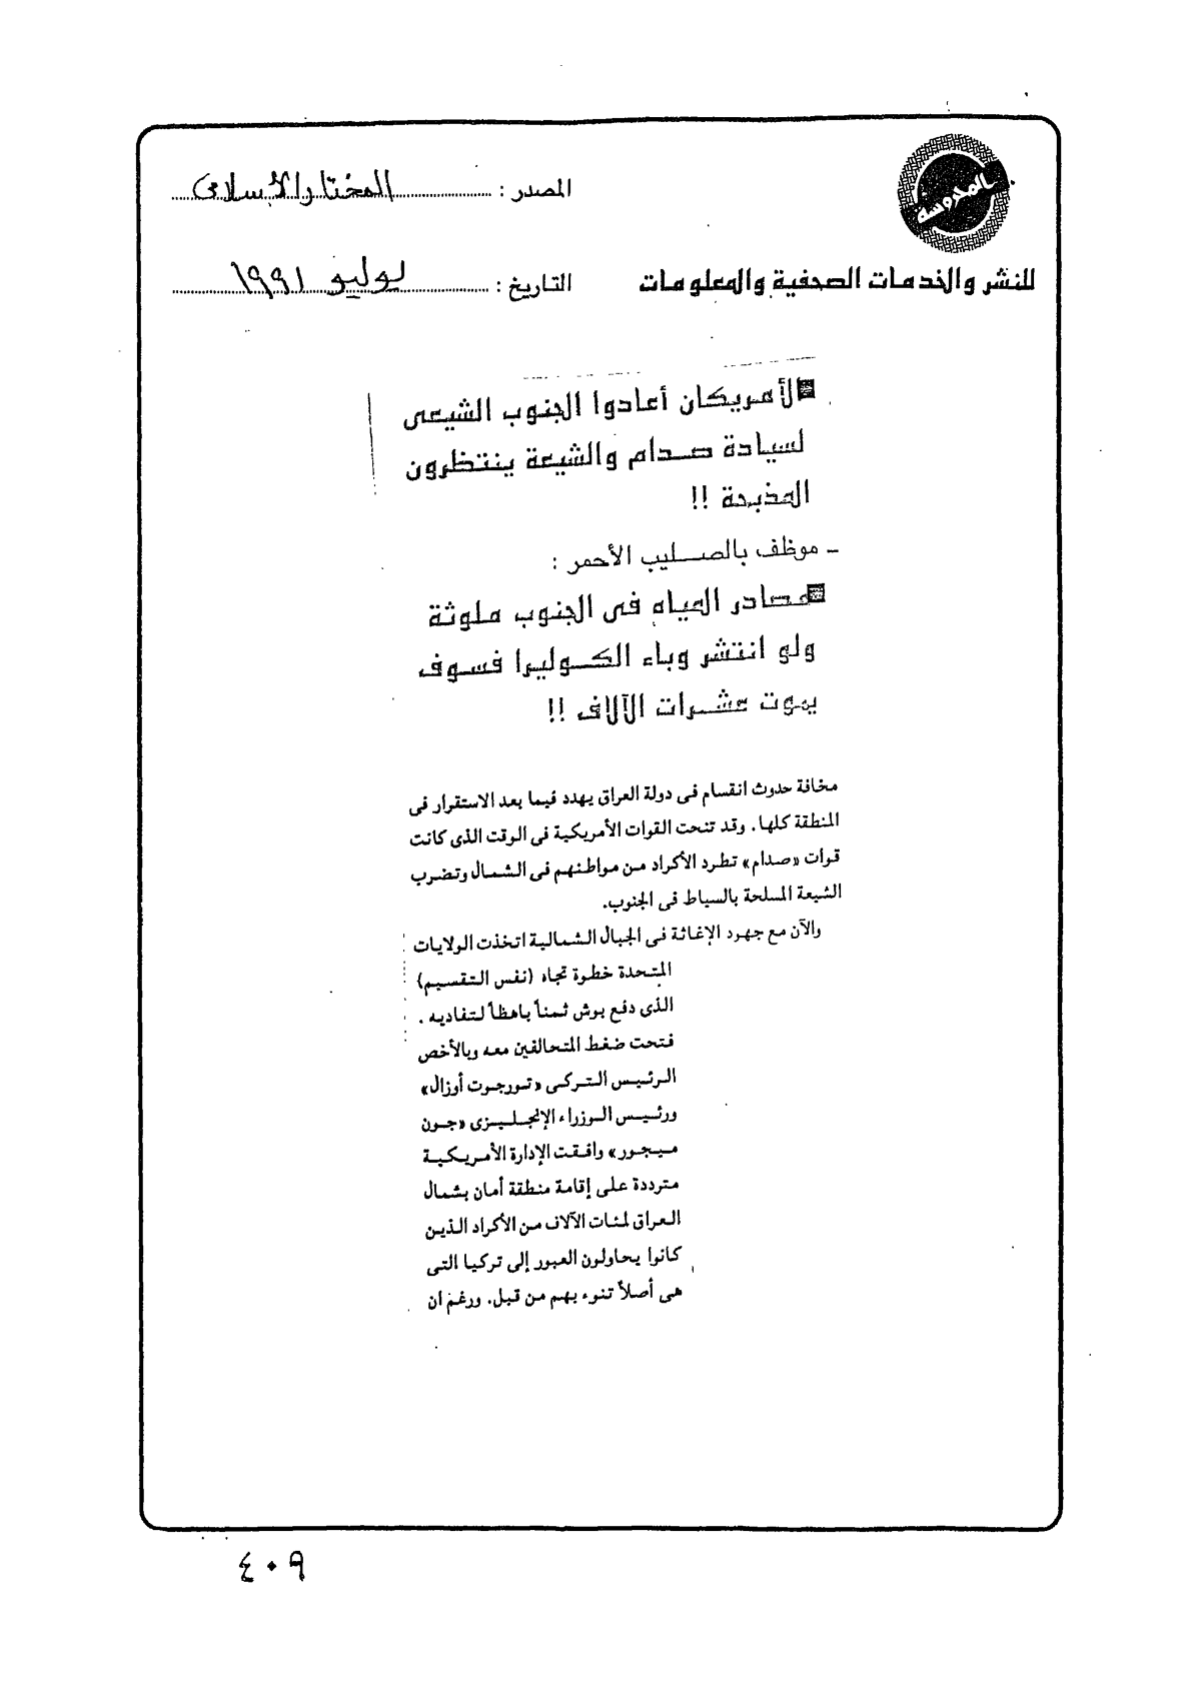 المحروسة
للنشر والخدمات الصحفية والمعلومات
المصدر : المختار الإسلامى
التاريخ : يوليو ١٩٩١
الأمريكان أعادوا الجنوب الشيعى
لسيادة صدام والشيعة ينتظرون
المذبحة !!
ـ موظف بالصليب الأحمر :
مصادر المياه فى الجنوب ملوثة
ولو انتشر وباء الكوليرا فسوف
يموت عشرات الآلاف !!
مخافة حدوث انقسام فى دولة العراق يهدد فيما بعد الاستقرار فى
المنطقة كلها. وقد تنحت القوات الأمريكية فى الوقت الذى كانت
قوات «صدام» تطرد الأكراد من مواطنهم فى الشمال وتضرب
الشيعة المسلحة بالسياط فى الجنوب.
والآن مع جهود الإغاثة فى الجبال الشمالية اتخذت الولايات
المتحدة خطوة تجاه (نفس التقسيم)
الذى دفع بوش ثمناً باهظاً لتفاديه .
فتحت ضغط المتحالفين معه وبالأخص
الرئيس التركى «تورجوت أوزال»
ورئيس الوزراء الإنجليزى «جون
ميجور» وافقت الإدارة الأمريكية
مترددة على إقامة منطقة أمان بشمال
العراق لمئات الآلاف من الأكراد الذين
كانوا يحاولون العبور إلى تركيا التى
هى أصلاً تنوء بهم من قبل. ورغم ان
٤٠٩